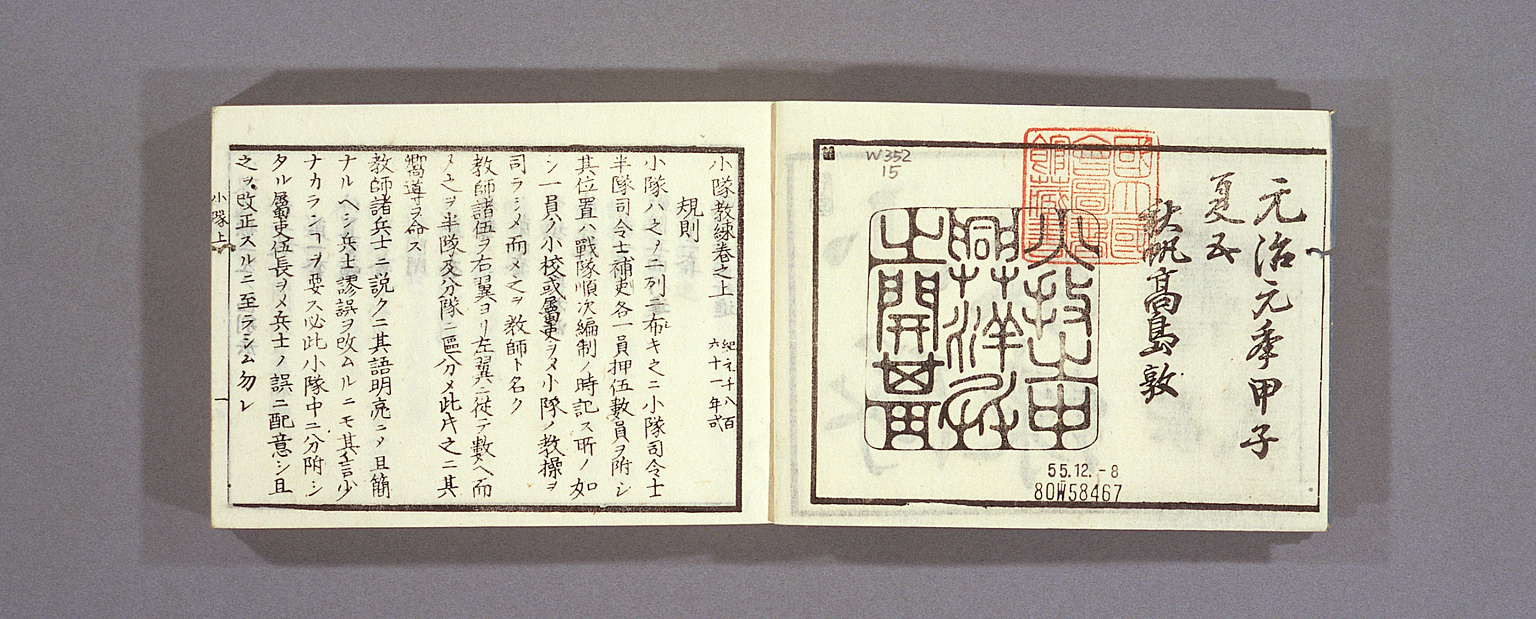 元治元季甲子
夏五
秋帆高島敦
火技中興洋兵開基
國立國會圖書館藏書
W352
15
55.12.-8
80W58467
小隊教練卷之上
紀元千八百
六十一年式
規則
小隊ハ之ヲ二列ニ布キ之ニ小隊司令士
半隊司令士補吏各一員押伍數員ヲ附シ
其位置ハ戰隊順次編制ノ時記ス所ノ如
シ一員ノ小校或屬吏ヲメ小隊ノ教操ヲ
司ラシメ而メ之ヲ教師ト名ク
教師諸伍ヲ右翼ヨリ左翼ニ從テ數ヘ而
メ之ヲ半隊及分隊ニ區分メ此片之ニ其
嚮導ヲ命ス
教師諸兵士ニ説クニ其語明亮ニメ且簡
ナルヘシ兵士謬誤ヲ改ムルニモ其言少
ナカランヿヲ要ス必此小隊中ニ分附シ
タル屬吏伍長ヲメ兵士ノ誤ニ配意シ且
之ヲ改正スルニ至ラシム勿レ
小隊上
一